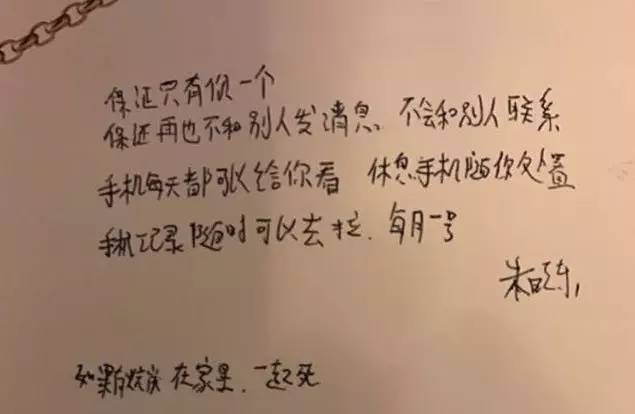 保证只有你一个
保证再也不和别人发消息 不会和别人联系
手机每天都可以给你看 休息手机随你处置
手机记录随时可以去拉、每月一号
朱晓东
如果有炸弹 在家里、一起死